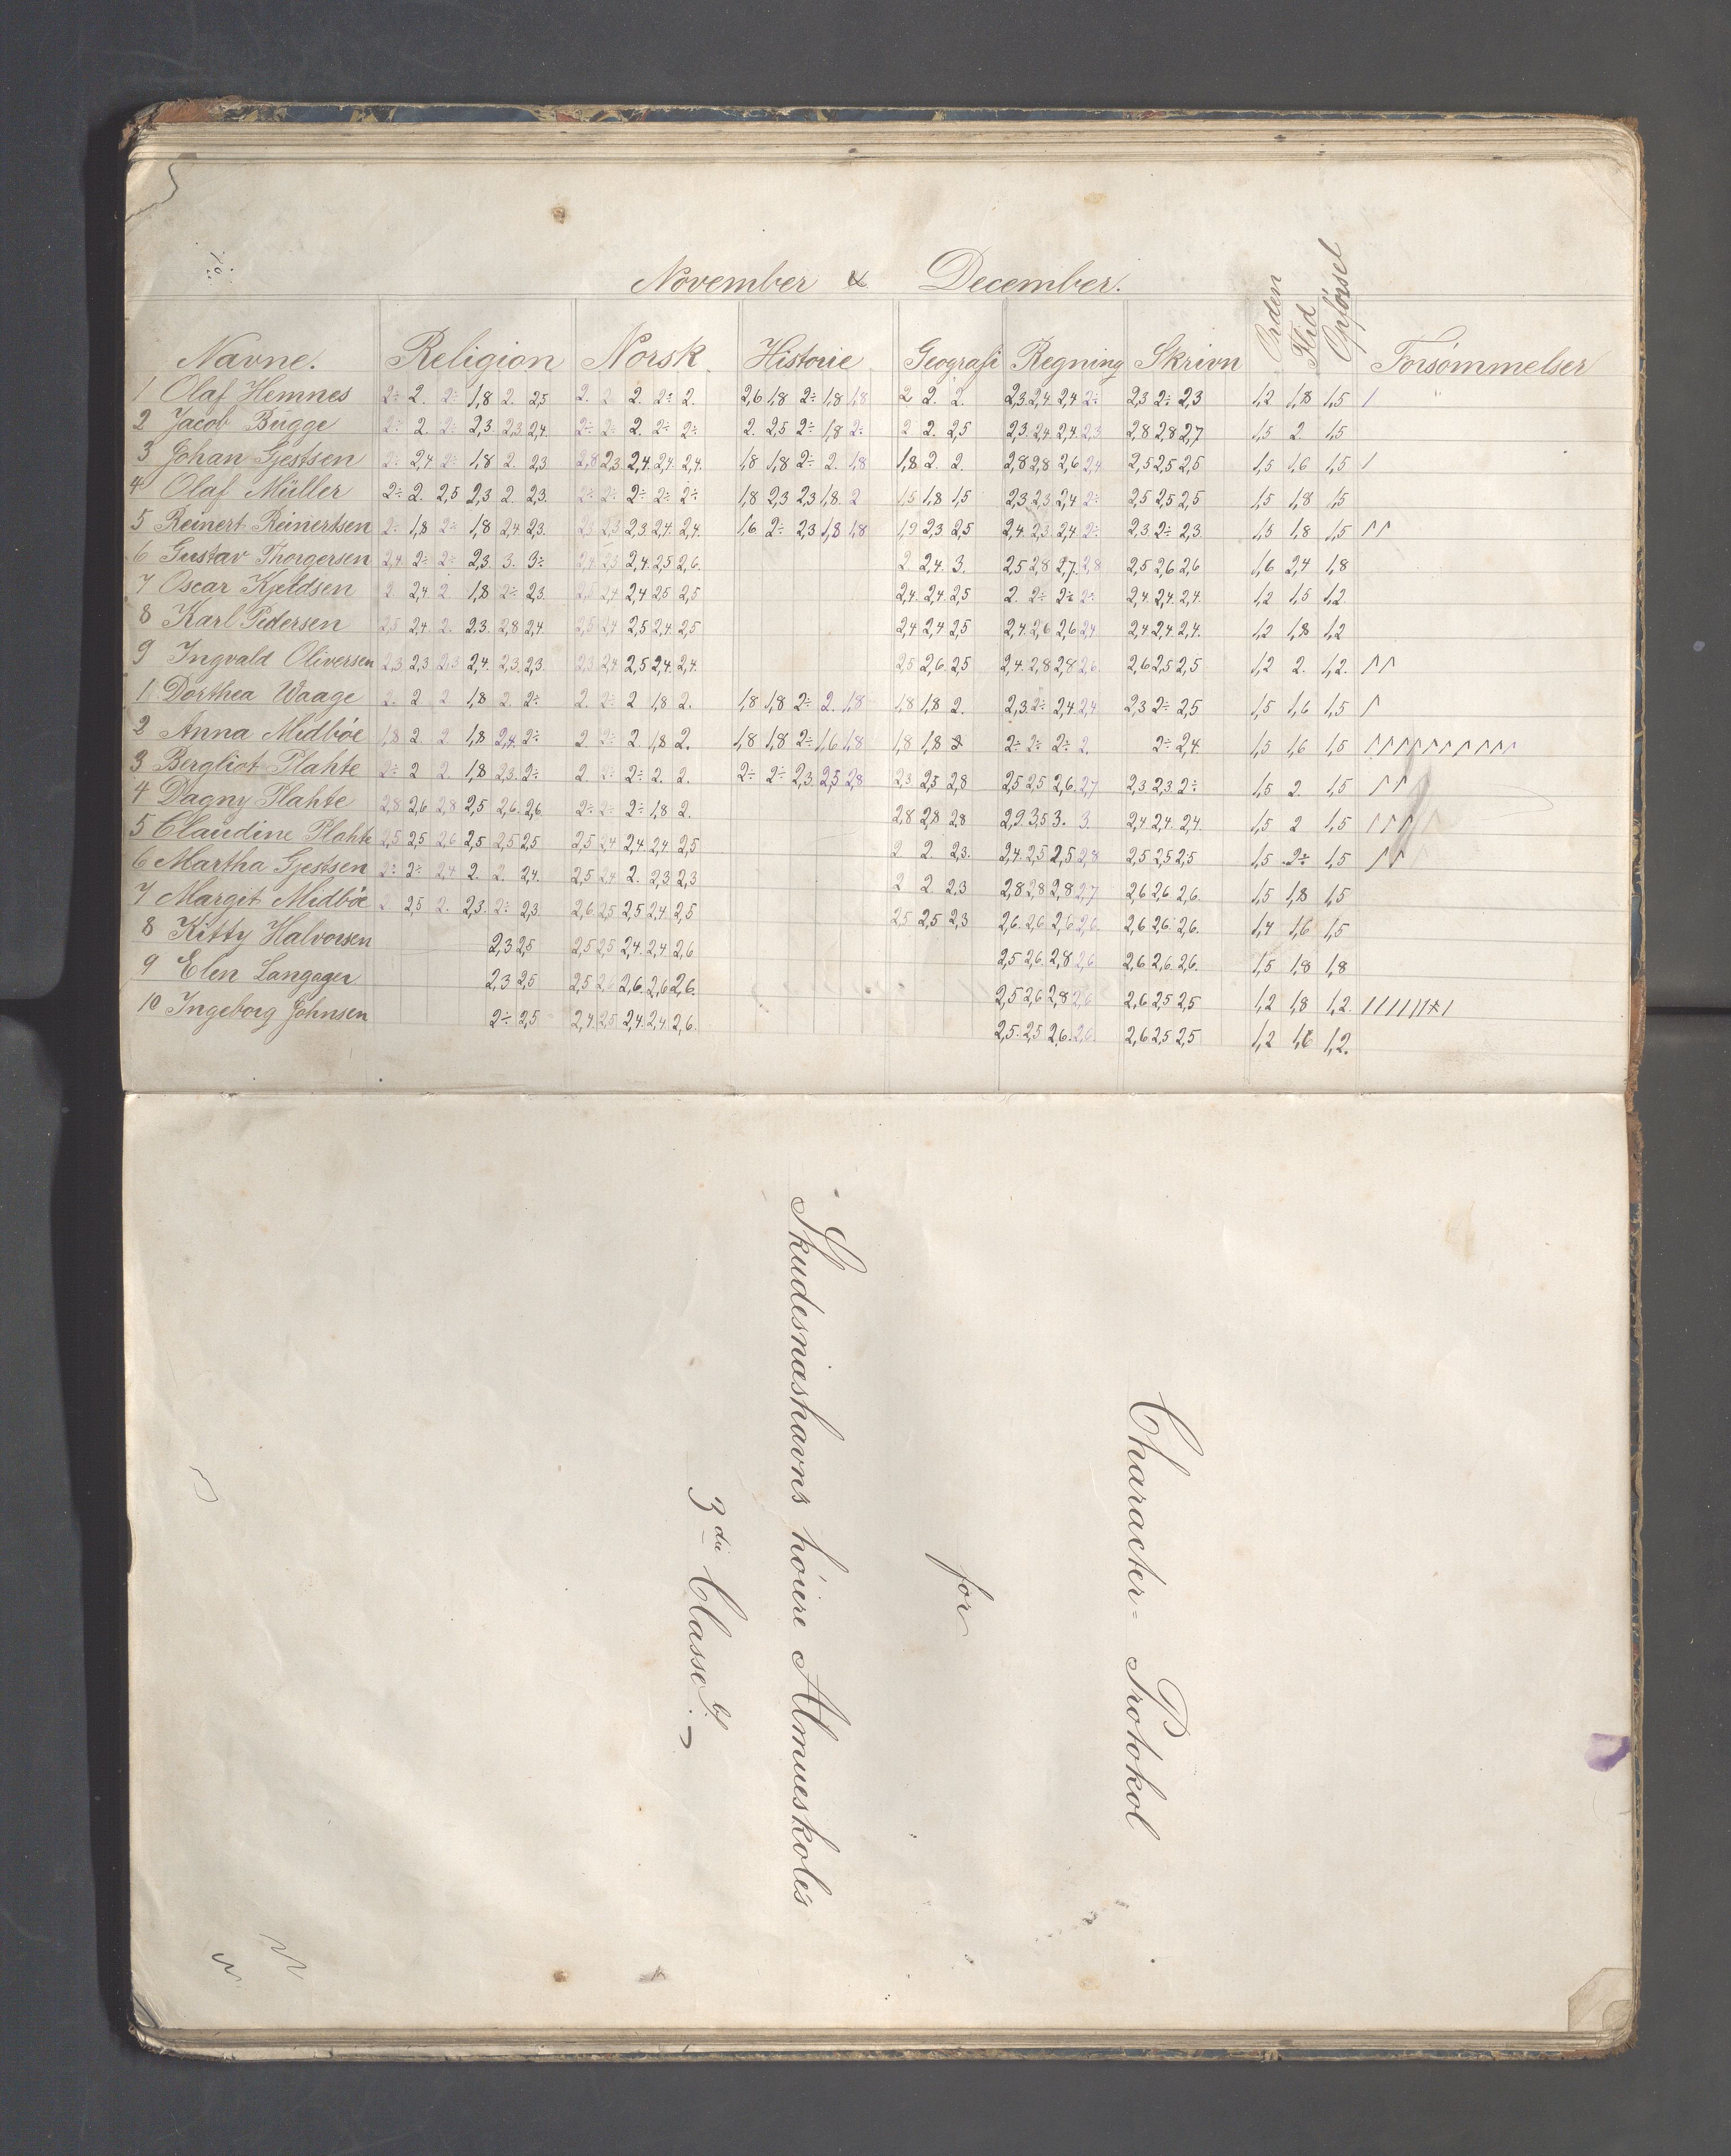 November & December.
Navne. Religion Norsk Historie Geografi Regning Skrivn Orden Flid Opførsel Forsømmelser
1 Olaf Hemnes 2÷ 2. 2÷ 1,8 2. 2,5 2. 2 2. 2÷ 2. 2,6 1,8 2÷ 1,8 1,8 2 2. 2. 2,3 2,4 2,4 2÷ 2,3 2÷ 2,3 1,2 1,8 1,5 /
2 Jacob Bügge 2÷ 2. 2÷ 2,3. 2,3 2,4. 2÷ 2÷ 2. 2÷ 2÷ 2. 2,5 2÷ 1,8 2÷ 2 2. 2,5 2,3 2,4 2,4 2,3 2,8 2,8 2,7 1,5 2. 1,5
3 Johan Gjestsen 2÷ 2,4 2÷ 1,8 2. 2,3 2,8 2,3 2,4. 2,4. 2,4. 1,8 1,8 2÷ 2. 1,8 1,8 2. 2. 2,8 2,8 2,6 2,4 2,5 2,5 2,5 1,5 1,6 1,5 /
4 Olaf Müller 2÷ 2. 2,5 2,3 2. 2,3. 2÷ 2÷ 2÷ 2÷ 2÷ 1,8 2,3 2,3 1,8. 2 1,5 1,8 1,5 2,3 2,3 2,4 2÷ 2,5 2,5 2,5 1,5 1,8 1,5
5 Reinert Reinertsen 2÷ 1,8 2÷ 1,8 2,4 2,3. 2,3 2,3 2,3. 2,4. 2,4. 1,6 2÷ 2,3 1,8 1,8 1,9 2,3 2,5 2,4. 2,3. 2,4 2÷ 2,3. 2÷ 2,3. 1,5 1,8 1,5 / /
6 Gustav Thorgersen 2,4 2÷ 2÷ 2,3. 3. 3÷ 2,4 2,3 2,4. 2,5 2,6. 2 2,4. 3. 2,5 2,8 2,7. 2,8 2,5 2,6 2,6 1,6 2,4 1,8
7 Oscar Kjeldsen 2 2,4 2. 1,8 2÷ 2,3 2,5 2,4 2,4 2,5 2,5 2,4. 2,4. 2,5 2. 2÷ 2÷ 2÷ 2,4 2,4. 2,4. 1,2 1,5 1,2.
8 Karl Pedersen 2,5 2,4 2. 2,3. 2,8 2,4. 2,5 2,4 2,5 2,4. 2,5 2,4 2,4 2,5 2,4. 2,6 2,6 2,4 2,4 2,4 2,4. 1,2 1,8 1,2
9 Ingvald Oliversen 2,3 2,3 2,3 2,4. 2,3. 2,3. 2,3 2,4 2,5 2,4. 2,4. 2,5 2,6. 2,5 2,4. 2,8 2,8 2,6 2,6 2,5 2,5 1,2 2. 1,2. / /
1 Dorthea Waage 2. 2. 2 1,8 2. 2÷ 2. 2÷ 2 1,8 2. 1,8 1,8 2÷ 2. 1,8 1,8 1,8 2. 2,3 2÷ 2,4 2,4 2,3 2÷ 2,5 1,5 1,6 1,5 /
2 Anna Midbøe 1,8 2. 2. 1,8 2,4. 2÷ 2 2÷ 2. 1,8 2. 1,8 1,8 2÷ 1,6 1,8 1,8 1,8 2 2÷ 2÷ 2÷ 2 2÷ 2,4. 1,5 1,6 1,5 / / / / / / / / / /
3 Bergliot Plahte 2÷ 2 2. 1,8 2,3. 2÷ 2. 2÷ 2÷ 2. 2. 2÷ 2÷ 2,3 2,5 2,8 2,3 2,5 2,8 2,5 2,5 2,6 2,7 2,3 2,3 2÷ 1,5 2. 1,5 / /
4 Dagny Plahte 2,8 2,6 2,8 2,5 2,6. 2,6 2÷ 2÷ 2÷ 1,8 2. 2,8 2,8 2,8 2,9. 3,5 3. 3. 2,4 2,4. 2,4 1,5 2 1,5 / / /
5 Claudine Plahte 2,5 2,5 2,6 2,5 2,5 2,5 2,5 2,4 2,4. 2,4 2,5 2 2. 2,3. 2,4. 2,5 2,5 2,8 2,5 2,5 2,5 1,5 2÷ 1,5 / /
6 Martha Gjestsen 2÷ 2÷ 2,4 2. 2. 2,4. 2,5 2,4 2. 2,3 2,3 2 2 2,3 2,8 2,8 2,8 2,7 2,6 2,6 2,6. 1,5 1,8 1,5
7 Margit Midbøe 2 2,5 2. 2,3. 2÷ 2,3. 2,6. 2,5 2,5 2,4 2,5 2,5 2,5 2,3 2,6. 2,6 2,6 2,6 2,6 2,6. 2,6. 1,4 1,6 1,5
8 Kitty Halvorsen 2,3 2,5 2,5 2,5 2,4. 2,4 2,6 2,5 2,6. 2,8 2,6 2,6 2,6. 2,6. 1,5 1,8 1,8
9 Elen Langager 2,3 2,5 2,5 2,6 2,6. 2,6 2,6. 2,5 2,6 2,8 2,6 2,6 2,5 2,5 1,2 1,8 1,2.
10 Ingeborg Johnsen 2÷ 2,5 2,4. 2,5 2,4. 2,4. 2,6. 2,5. 2,5 2,6. 2,6 2,6 2,5 2,5 1,2 1,6 1,2.
Character= Protokol
for
Skudesnæshavns høiere Almueskoles
3die Classe.